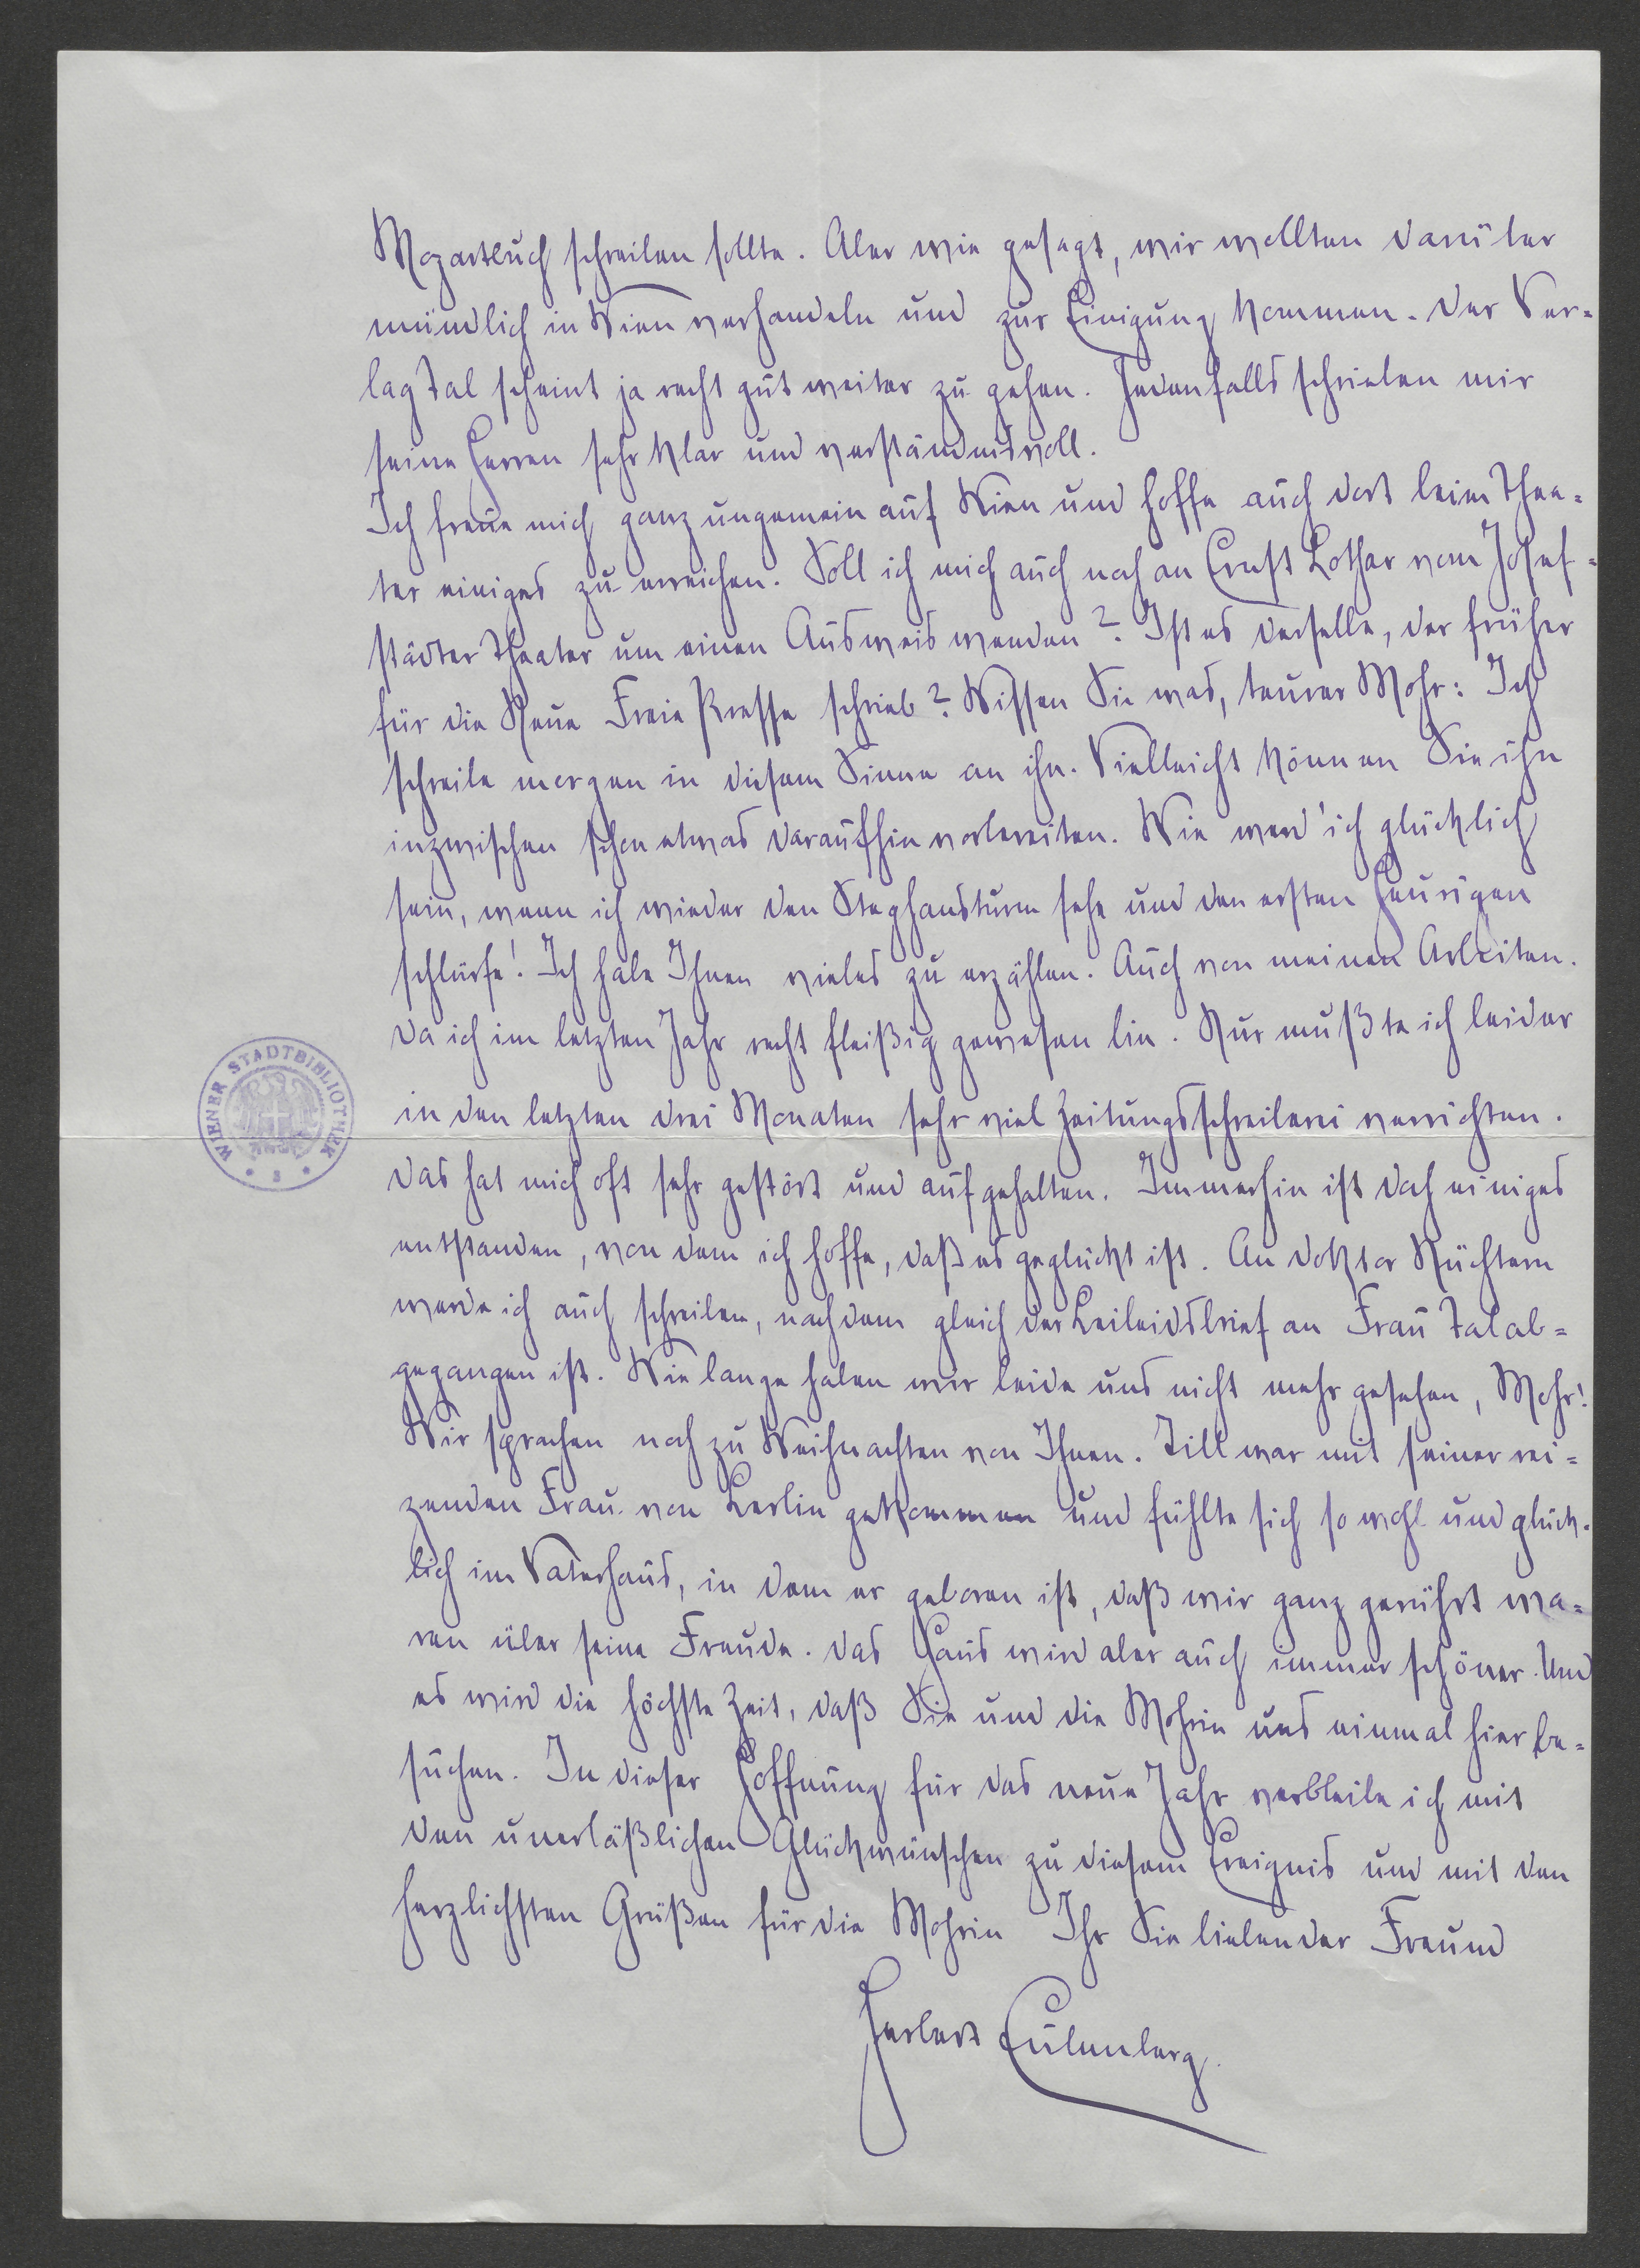 Mozartbuch schreiben sollte. Aber wie gesagt, wir wollten darüber
mündlich in Wien verhandeln und zur Einigung kommen. Der Ver=
lag Tal scheint ja recht gut weiter zu gehen. Jedenfalls schrieben mir
seine Herren sehr klar und verständnisvoll.
Ich freue mich ganz ungemein auf Wien und hoffe auch dort beim Thea=
ter einiges zu erreichen. Soll ich mich auch noch an Ernst Lothar vom Josef=
städter Theater um einen Ausweis wenden? Ist es derselbe, der früher
für die Neue Freie Presse schrieb? Wissen Sie was, teurer Mohr: Ich
schreibe morgen in diesem Sinne an ihn. Vielleicht können Sie ihn
inzwischen schon etwas daraufhin vorbereiten. Wie werd' ich glücklich
sein, wenn ich wieder den Stephansturm sehe und den ersten Heurigen
schlürfe! Ich habe Ihnen vieles zu erzählen. Auch von meinen Arbeiten.
Da ich im letzten Jahr recht fleißig gewesen bin. Nur mußte ich leider
in den letzten drei Monaten sehr viel Zeitungsschreiberei verrichten.
Das hat mich oft sehr gestört und aufgehalten. Immerhin ist doch einiges
entstanden, von dem ich hoffe, daß es geglückt ist. An Doktor Nüchtern
werde ich auch schreiben, nachdem gleich der Beileidsbrief an Frau Tal ab=
gegangen ist. Wie lange haben wir beide uns nicht mehr gesehen, Mohr!
Wir sprachen noch zu Weihnachten von Ihnen. Till war mit seiner rei=
zenden Frau von Berlin gekommen und fühlte sich so wohl und glück=
lich im Vaterhaus, in dem er geboren ist, daß wir ganz gerührt wa=
ren über seine Freude. Das Haus wird aber auch immer schöner. Und
es wird die höchste Zeit, daß Sie und die Mohrin uns einmal hier be=
suchen. In dieser Hoffnung für das neue Jahr verbleibe ich mit
den unerläßlichen Glückwünschen zu diesem Ereignis und mit den
herzlichsten Grüßen für die Mohrin Ihr Sie liebender Freund
Herbert Eulenberg.
WIENER STADTBIBLIOTHEK